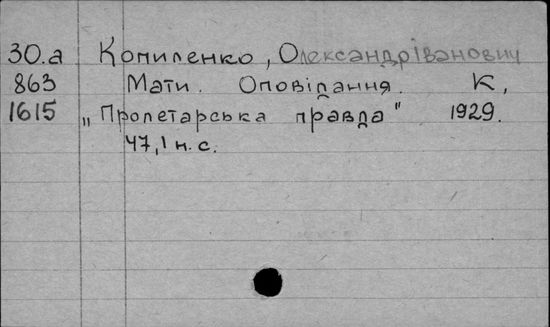 30.а Копиленко, Олександр Іванович
863 Мати. Оповідання. К,
1615 „Пролетарська правда" 1929.
47, 1 н. с.